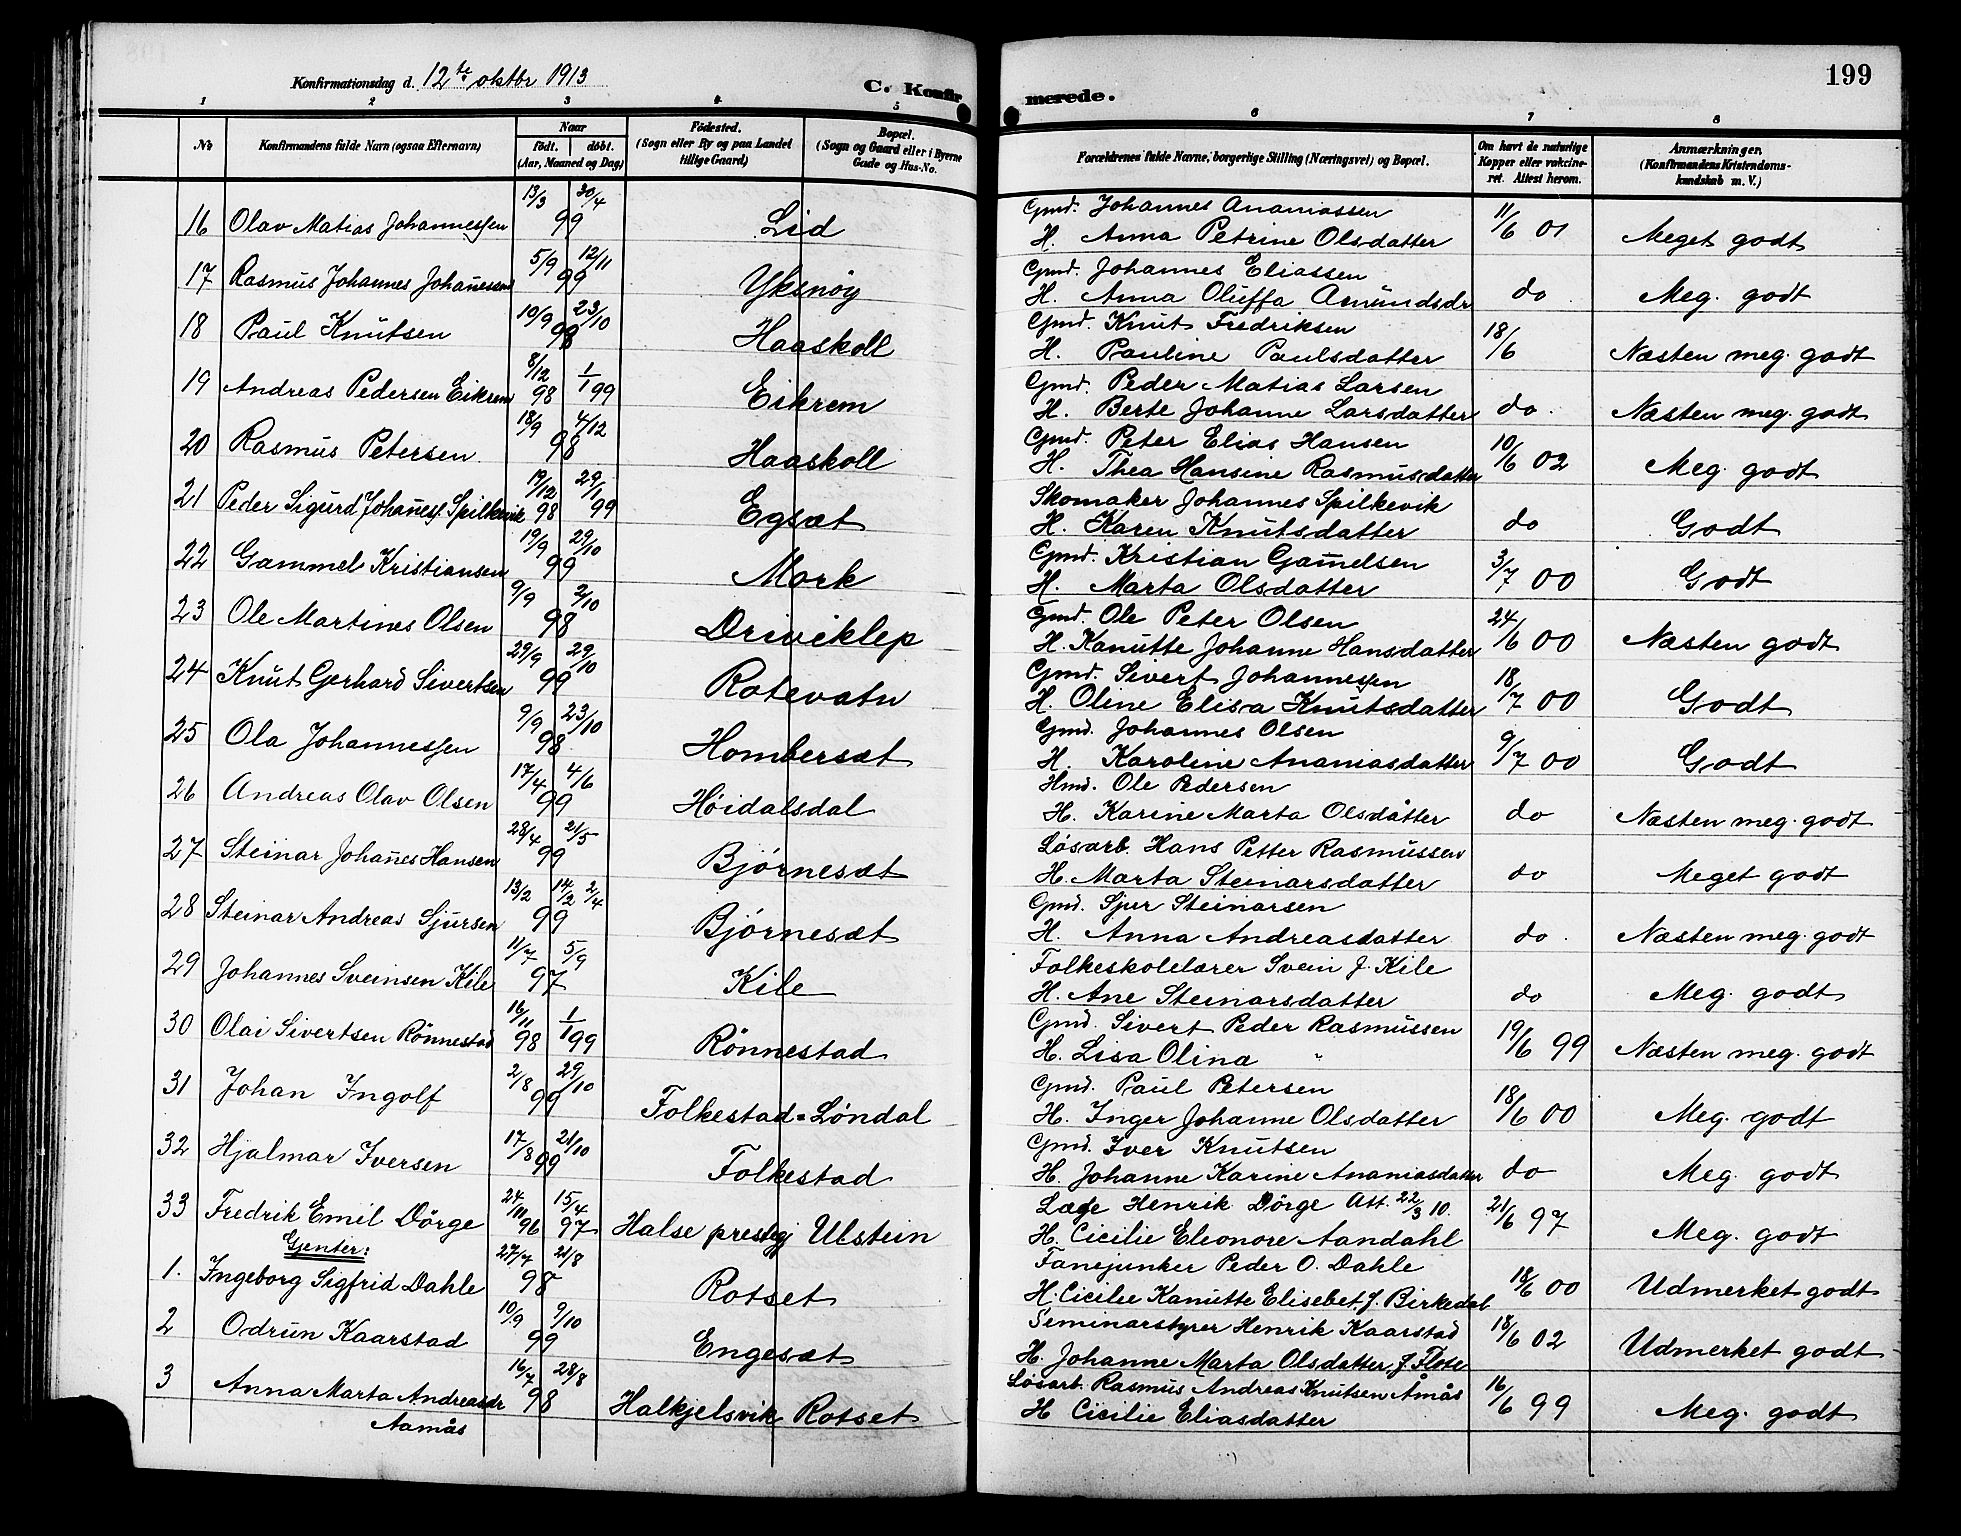 199
Konfirmationsdag d. 12te oktbr 1913
C. Konfirmerede.
1 2 3 4 5 6 7 8
No
Konfirmandens fulde Navn (ogsaa Efternavn)
Naar
født. døbt.
(Aar, Maaned og Dag)
Fødested.
(Sogn eller By og paa Landet
tillige Gaard)
Bopæl.
(Sogn og Gaard eller i Byerne
Gade og Hus-No.
Forældrenes fulde Navne, borgerlige Stilling (Næringsvei) og Bopæl.
Om havt de naturlige
Kopper eller vakcine-
ret. Attest herom.
Anmærkninger.
(Konfirmandens Kristendoms-
kundskab m. V.)
16 Olav Matias Johannessen 13/3 30/4 99 Lid Gmd. Johannes Ananiassen
H. Anna Petrine Olsdatter 11/6 01 Meget godt
17 Rasmus Johannes Johanesen 5/9 12/11 99 Yksnøy Gmd. Johannes Eliassen
H. Anna Oluffa Amundsdr do Meg. godt
18 Paul Knutsen 10/9 23/10 98 Haaskoll Gmd. Knut Fredriksen
H. Pauline Paulsdatter 18/6 Næsten meg. godt
19 Andreas Pedersen Eikrem 8/12 98 1/1 99 Eikrem Gmd. Peder Matias Larsen
H. Berte Johanne Larsdatter do. Næsten meg. godt
20 Rasmus Petersen 18/9 4/12 98 Haaskoll Gmd. Peter Elias Hansen
H. Thea Hansine Rasmusdatter 10/6 02 Meg. godt
21 Peder Sigurd Johanes. Spilkevik 19/12 98 29/1 99 Egsæt Skomaker Johannes Spilkevik
H. Karen Knutsdatter do Godt
22 Gammel Kristiansen 19/9 29/10 99 Mork Gmd. Kristian Gamelsen
H. Marta Olsdatter 3/7 00 Godt
23 Ole Martines Olsen 9/9 2/10 98 Driviklep Gmd. Ole Peter Olsen
H. Kanutte Johanne Hansdatter 24/6 00 Næsten godt
24 Knut Gerhard Sivertsen 29/9 29/10 99 Rotevatn Gmd. Sivert Johannessen
H. Oline Elisa Knutsdatter 18/7 00 Godt
25 Ola Johannessen 9/9 23/10 98 Hombersæt Gmd. Johannes Olsen
H. Karoline Ananiasdatter 9/7 00 Godt
26 Andreas Olav Olsen 17/4 4/6 99 Høidalsdal Hmd. Ole Pedersen
H. Karine Marta Olsdatter do Næsten meg. godt
27 Steinar Johanes Hansen 28/4 21/5 99 Bjørnesæt Løsarb. Hans Petter Rasmussen
H. Marta Steinarsdatter do Meget godt
28 Steinar Andreas Sjursen 13/2 14/2 2/4 99 Bjørnesæt Gmd. Sjur Steinarsen
H. Anna Andreasdatter do. Næsten meg. godt
29 Johannes Sveinsen Kile 11/7 5/9 97 Kile Folkeskolelærer Svein J. Kile
H. Ane Steinarsdatter do Meg. godt
30 Olai Sivertsen Rönnestad 16/11 98 1/1 99 Rönnestad Gmd. Sivert Peder Rasmussen
H. Lisa Olina " 19/6 99 Næsten meg. godt
31 Johan Ingolf 2/8 29/10 99 Folkestad=Løndal Gmd. Paul Petersen
H. Inger Johanne Olsdatter 18/6 00 Meg. godt
32 Hjalmar Iversen 17/8 21/10 99 Folkestad Gmd. Iver Knutsen
H. Johanne Karine Ananiasdatter do Meg. godt
33 Fredrik Emil Dörge 24/11 96 15/4 97 Halse prestegj Ulstein Læge Henrik Dörge Att. 22/3 10.
H. Cicilie Eleonore Aandahl 21/6 97 Meg. godt
Gjenter:
1. Ingeborg Sigfrid Dahle 27/7 21/8 98 Rotset Fanejunker Peder O. Dahle
H. Cicilie Kanutte Elisebet f. Birkedal 18/6 00 Udmerket godt
2 Odrun Kaarstad 10/9 9/10 99 Engesæt Seminarstyrer Henrik Kaarstad
H. Johanne Marta Olsdatter, f. Flote 18/6 02 Udmerket godt
3 Anna Marta Andreasdr 16/7 28/8 98 Halkjelsvik Rotset Løsarb. Rasmus Andreas Knutsen Åmås
Aamås H Cicilie Eliasdatter 16/6 99 Meg. godt